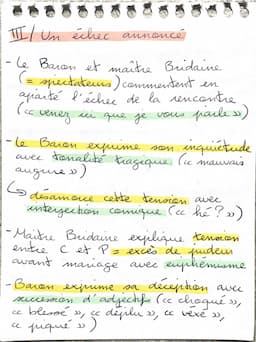 III/ Un échec annoncé
- Le Baron et maître Bridaine
(= spectateurs) commentent en
aparté l'échec de la rencontre
(« venez ici que je vous parle »)
- Le Baron exprime son inquiétude
avec tonalité tragique (« mauvais
augure »)
↳ désamorce cette tension avec
interjection comique (« hé ? »)
- Maître Bridaine explique tension
entre C et P = excès de pudeur
avant mariage avec euphémisme
- Baron exprime sa déception avec
succession d'adjectifs (« choqué »,
« blessé », « déplu », « vexé »,
« piqué »)